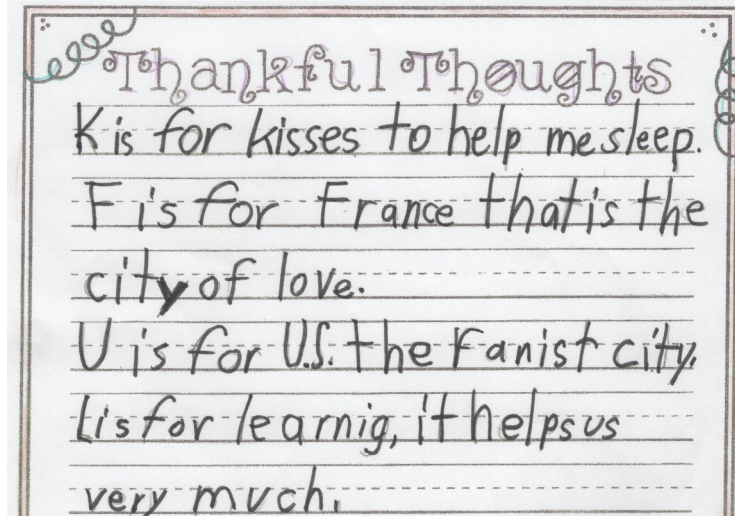 Thankful Thoughts
K is for kisses to help me sleep.
F is for France that is the
city of love.
U is for U.S. the Fanist city.
L is for learnig, it helps us
very much.